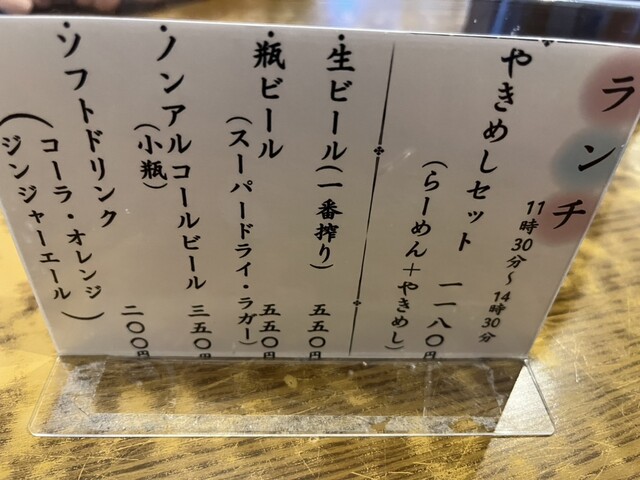 ランチ
11時30分～14時30分
やきめしセット 一一八〇円
(らーめん＋やきめし)
・生ビール(一番搾り) 五五〇円
・瓶ビール 五五〇円
(スーパードライ・ラガー)
・ノンアルコールビール 三五〇円
(小瓶)
・ソフトドリンク 二〇〇円
(コーラ・オレンジ
ジンジャーエール)